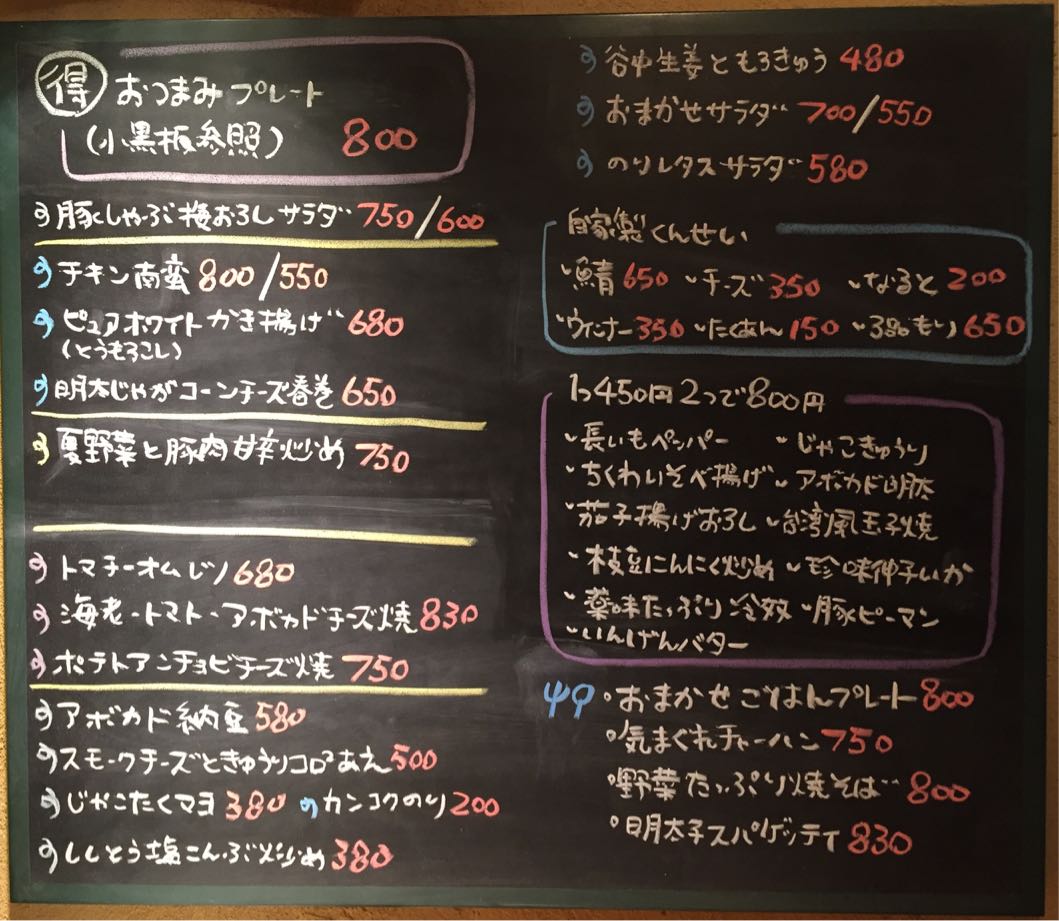 得 おつまみプレート
(小黒板参照) 800
豚しゃぶ梅おろしサラダ 750/600
チキン南蛮 800/550
ピュアホワイトかき揚げ 680
(とうもろこし)
明太じゃがコーンチーズ春巻 650
夏野菜と豚肉甘辛炒め 750
トマチーオムレツ 680
海老・トマト・アボカドチーズ焼 830
ポテトアンチョビチーズ焼 750
アボカド納豆 580
スモークチーズときゅうりコロコロあえ 500
じゃこたくマヨ 380 カンコクのり 200
ししとう塩こんぶ炒め 380
谷中生姜ともろきゅう 480
おまかせサラダ 700/550
のりレタスサラダ 580
自家製くんせい
鯖 650 チーズ 350 なると 200
ウィンナー 350 たくあん 150 3点もり 650
1つ450円2つで800円
長いもペッパー じゃこきゅうり
ちくわいそべ揚げ アボカド明太
茄子揚げおろし 台湾風玉子焼
枝豆にんにく炒め 珍味仲子いか
薬味たっぷり冷奴 豚ピーマン
いんげんバター
おまかせごはんプレート 800
気まぐれチャーハン 750
野菜たっぷり焼そば 800
明太子スパゲッティ 830